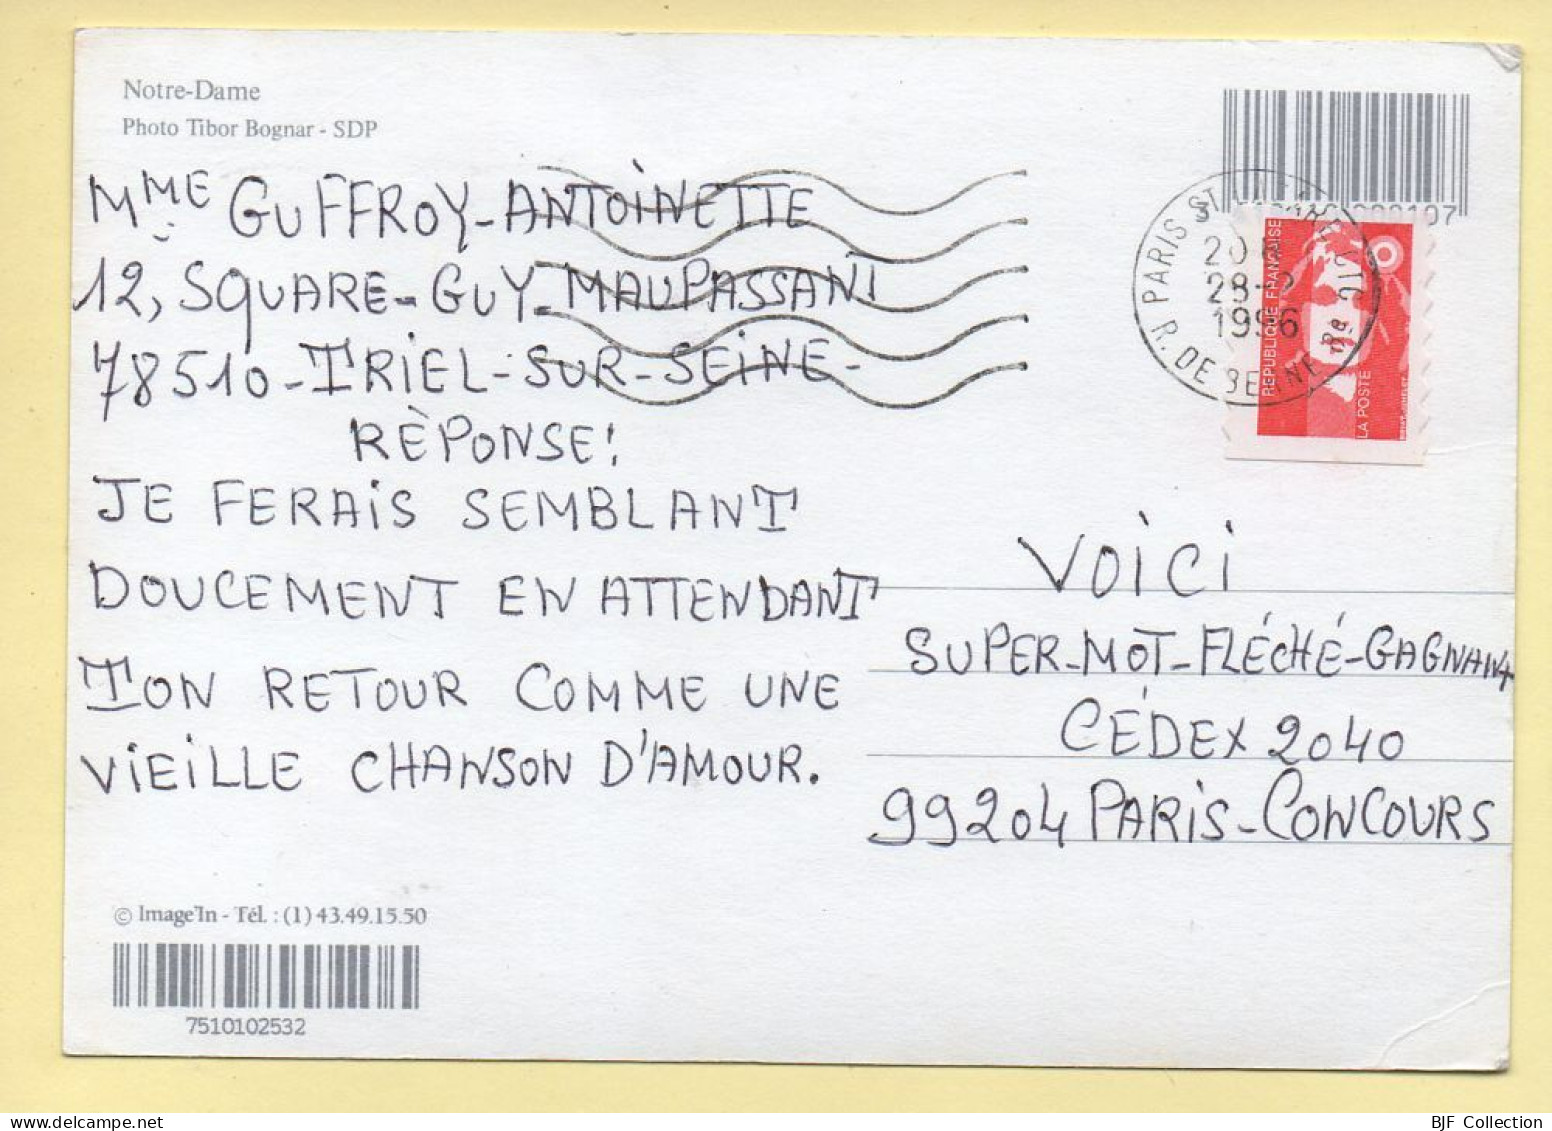 Notre-Dame
Photo Tibor Bognar - SDP
MME GUFFROY-ANTOINETTE
12, SQUARE-GUY-MAUPASSANT
78510-TRIEL-SUR-SEINE-
RÈPONSE!
JE FERAIS SEMBLANT
DOUCEMENT EN ATTENDANT
TON RETOUR COMME UNE
VIEILLE CHANSON D'AMOUR.
© Image'In - Tél. : (1) 43.49.15.50
7510102532
PARIS ST
R. DE
1996
REPUBLIQUE FRANÇAISE
LA POSTE
VOICI
SUPER-MOT-FLÉCHÉ-GAGNANT
CÉDEX 2040
99204 PARIS-CONCOURS
BJF Collection